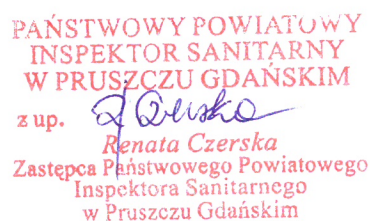 PAŃSTWOWY POWIATOWY
INSPEKTOR SANITARNY
W PRUSZCZU GDAŃSKIM
z up. R Czerska
Renata Czerska
Zastępca Państwowego Powiatowego
Inspektora Sanitarnego
w Pruszczu Gdańskim